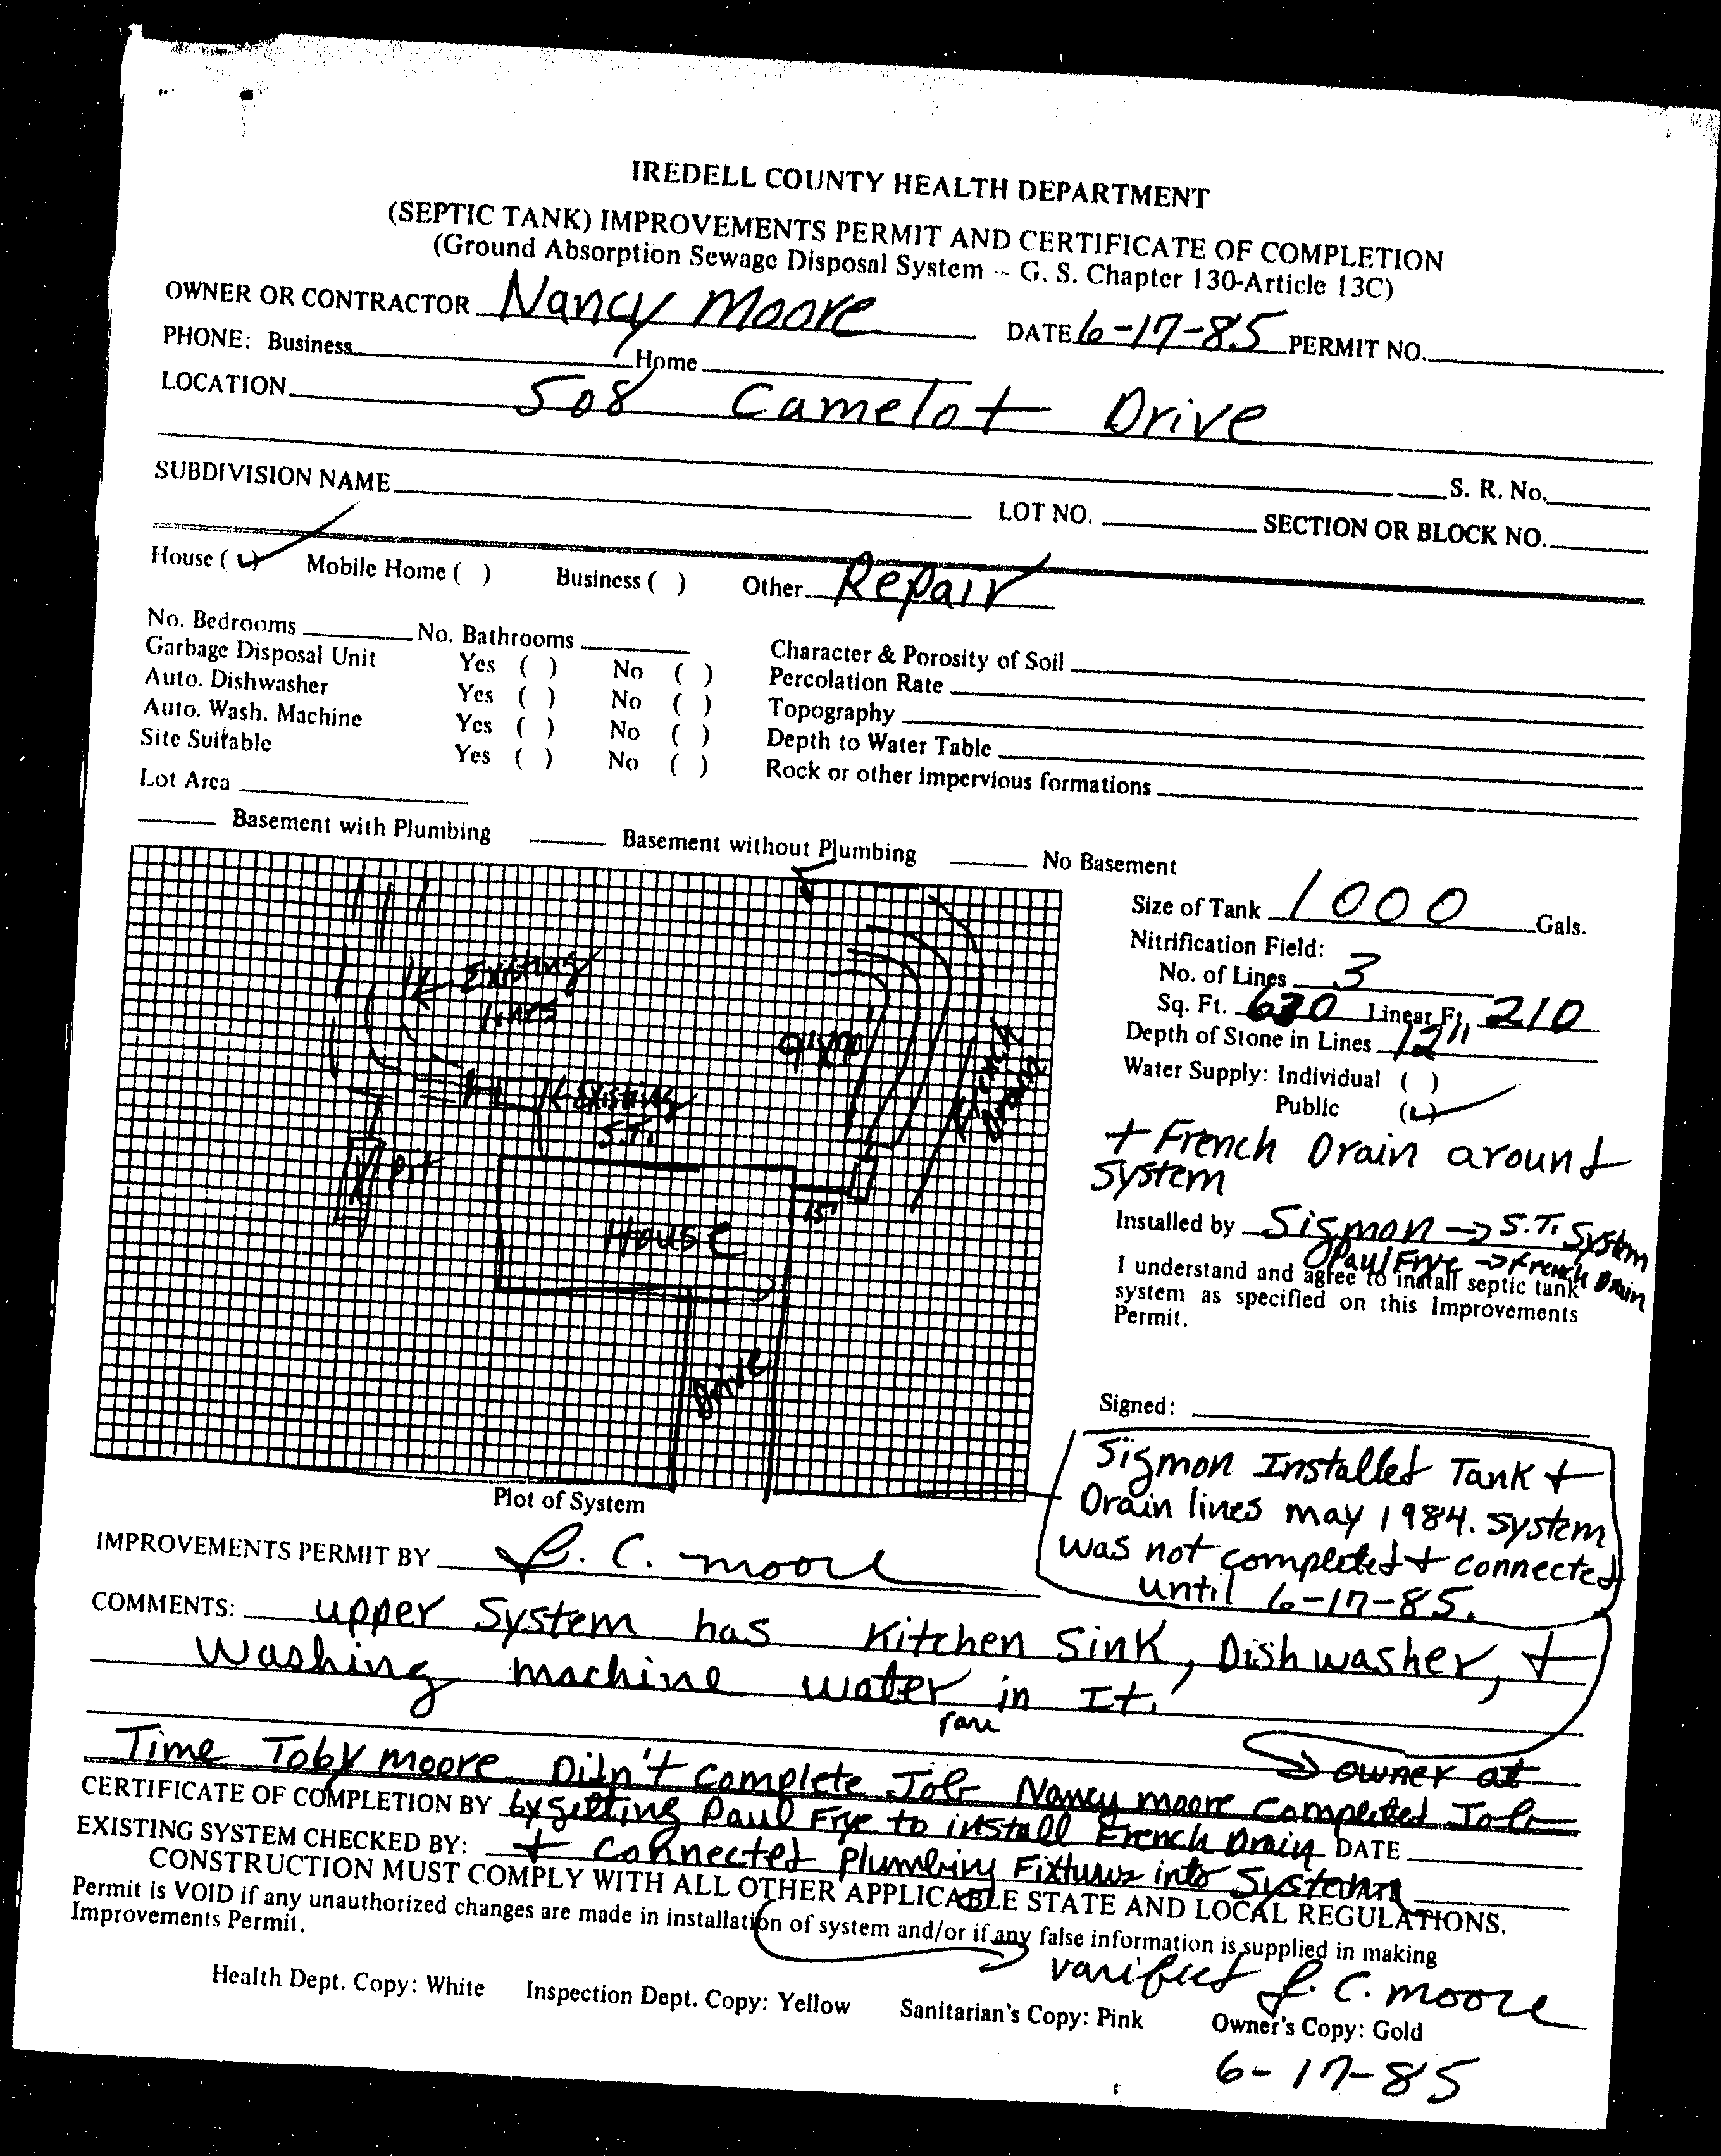 IREDELL COUNTY HEALTH DEPARTMENT
(SEPTIC TANK) IMPROVEMENTS PERMIT AND CERTIFICATE OF COMPLETION
(Ground Absorption Sewage Disposal System -- G. S. Chapter 130-Article 13C)
OWNER OR CONTRACTOR Nancy Moore DATE 6-17-85 PERMIT NO.
PHONE: Business Home
LOCATION 508 Camelot Drive
S. R. No.
SUBDIVISION NAME LOT NO. SECTION OR BLOCK NO.
House (✓) Mobile Home ( ) Business ( ) Other Repair
No. Bedrooms No. Bathrooms
Garbage Disposal Unit Yes ( ) No ( )
Auto. Dishwasher Yes ( ) No ( )
Auto. Wash. Machine Yes ( ) No ( )
Site Suitable Yes ( ) No ( )
Lot Area
Character & Porosity of Soil
Percolation Rate
Topography
Depth to Water Table
Rock or other impervious formations
Basement with Plumbing Basement without Plumbing No Basement
Existing
lines
Existing
S.T.
pit
House
15'
French
Drain
Drive
Plot of System
Size of Tank 1000 Gals.
Nitrification Field:
No. of Lines 3
Sq. Ft. 630 Linear Ft. 210
Depth of Stone in Lines 12"
Water Supply: Individual ( )
Public (✓)
+ French Drain around
System
Installed by Sigmon → S.T. System
Paul Frye → French Drain
I understand and agree to install septic tank
system as specified on this Improvements
Permit.
Signed:
Sigmon Installed Tank +
Drain lines may 1984. system
was not completed + connected
until 6-17-85.
IMPROVEMENTS PERMIT BY J. C. Moore
COMMENTS: upper System has Kitchen Sink, Dishwasher, +
Washing machine water in It.
→ owner at
Time Toby Moore Didn't complete Job Nancy Moore Completed Job
CERTIFICATE OF COMPLETION BY by getting Paul Frye to install French Drain DATE
EXISTING SYSTEM CHECKED BY: + Connected plumbing Fixtures into System
CONSTRUCTION MUST COMPLY WITH ALL OTHER APPLICABLE STATE AND LOCAL REGULATIONS.
Permit is VOID if any unauthorized changes are made in installation of system and/or if any false information is supplied in making
Improvements Permit.
varified J. C. Moore
Health Dept. Copy: White Inspection Dept. Copy: Yellow Sanitarian's Copy: Pink Owner's Copy: Gold
6-17-85